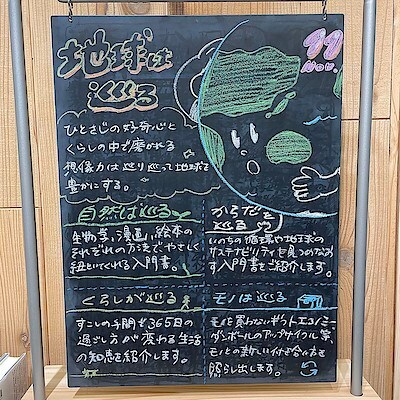 地球は
巡る
11
Nov.
ひとさじの好奇心と
くらしの中で磨かれる
想像力は巡り巡って地球を
豊かにする。
自然は巡る
生物学、漫画、絵本の
それぞれの方法でやさしく
紐といてくれる入門書。
からだを
巡る
いのちの循環や地球の
サステナビリティを見つめなお
す入門書をご紹介します。
くらしが巡る
すこしの手間で365日の
過ごし方が変わる生活
の知恵を紹介します。
モノは巡る
モノを買わないギフトエコノミー、
ダンボールのアップサイクル等、
モノとの新しい付き合い方を
照らし出します。